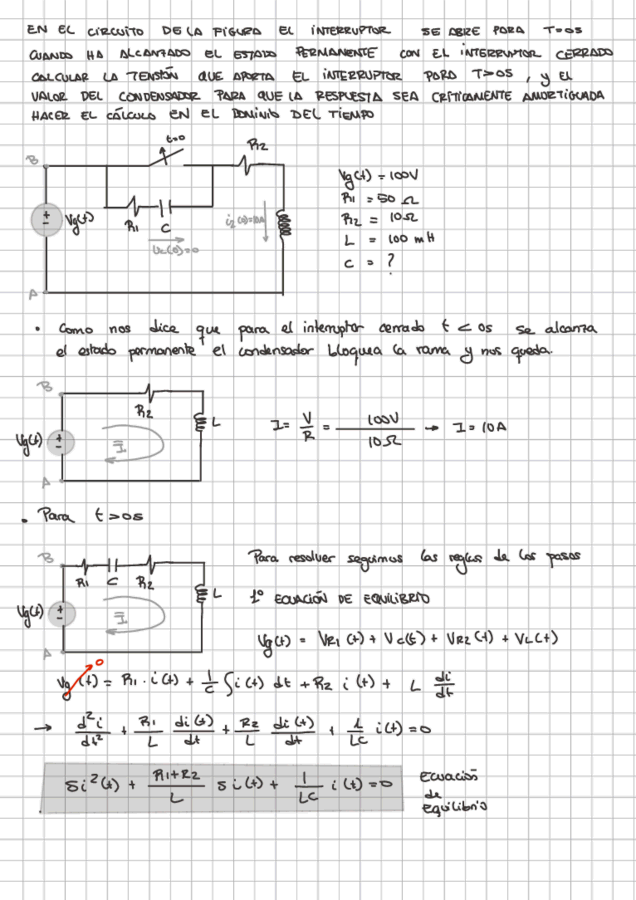 EN EL CIRCUITO DE LA FIGURA EL INTERRUPTOR SE ABRE PARA T=0S
CUANDO HA ALCANZADO EL ESTADO PERMANENTE CON EL INTERRUPTOR CERRADO
CALCULAR LA TENSIÓN QUE APORTA EL INTERRUPTOR PARA T>0S, Y EL
VALOR DEL CONDENSADOR PARA QUE LA RESPUESTA SEA CRÍTICAMENTE AMORTIGUADA
HACER EL CÁLCULO EN EL DOMINIO DEL TIEMPO
t=0
R2
B
Vg(t) = 100V
R1 = 50 Ω
R2 = 10Ω
L = 100 mH
C = ?
Vg(t)
R1 C
iL(0)=10A
Uc(0)=0
A
• Como nos dice que para el interruptor cerrado t < 0s se alcanza
el estado permanente el condensador bloquea la rama y nos queda.
B
R2
L
Vg(t)
I
A
I = V/R = 100V/10Ω → I = 10A
• Para t>0s
B
R1 C R2
L
Vg(t)
I
A
Para resolver seguimos las reglas de los pasos
1º ECUACIÓN DE EQUILIBRIO
Vg(t) = VR1(t) + Vc(t) + VR2(t) + VL(t)
0
Vg(t) = R1 · i(t) + 1/C ∫i(t) dt + R2 i(t) + L di/dt
→ d²i/dt² + R1/L di(t)/dt + R2/L di(t)/dt + 1/LC i(t) = 0
si²(t) + R1+R2/L si(t) + 1/LC i(t) = 0
Ecuación
de
equilibrio